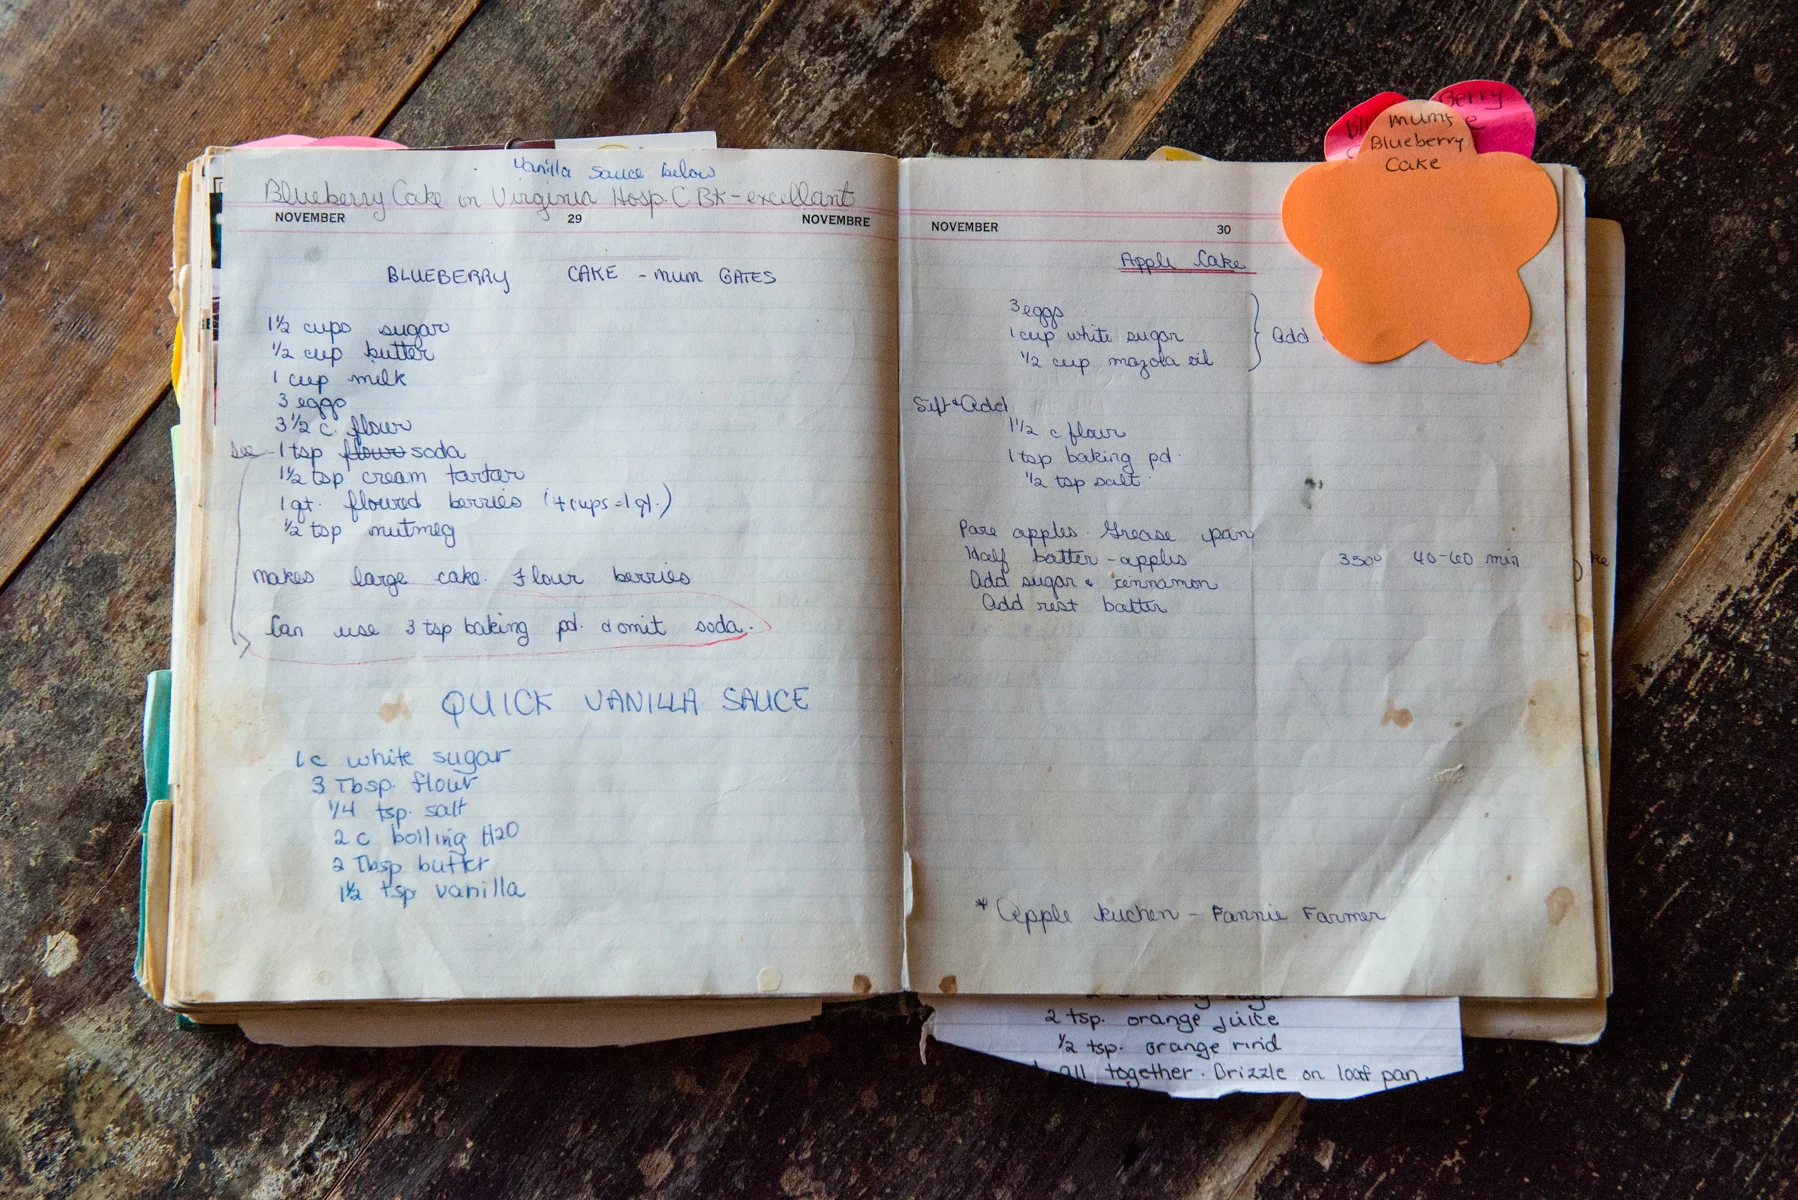 Vanilla Sauce below
Blueberry Cake in Virginia Hosp. C Bk - excellant
NOVEMBER 29 NOVEMBRE
BLUEBERRY CAKE - MUM GATES
1½ cups sugar
½ cup butter
1 cup milk
3 eggs
3 ½ c. flour
1 tsp flour soda
1½ tsp cream tartar
1 qt. floured berries (4 cups = 1 qt.)
½ tsp nutmeg
makes large cake. Flour berries
Can use 3 tsp baking pd. & omit soda.
QUICK VANILLA SAUCE
1 c white sugar
3 Tbsp. flour
1/4 tsp. salt
2 c boiling H2O
2 Tbsp butter
1½ tsp vanilla
Berry
Mum's
Blueberry
Cake
NOVEMBER 30
Apple Cake
3 eggs
1 cup white sugar
½ cup mazola oil
Add
Sift & Add
1½ c flour
1 tsp baking pd.
½ tsp salt.
Pare apples. Grease pan
Half batter - apples
Add sugar & cinnamon
Add rest batter
350° 40-60 min
* Apple Kuchen - Fannie Farmer
2 tsp. orange juice
½ tsp. orange rind
all together. Drizzle on loaf pan.